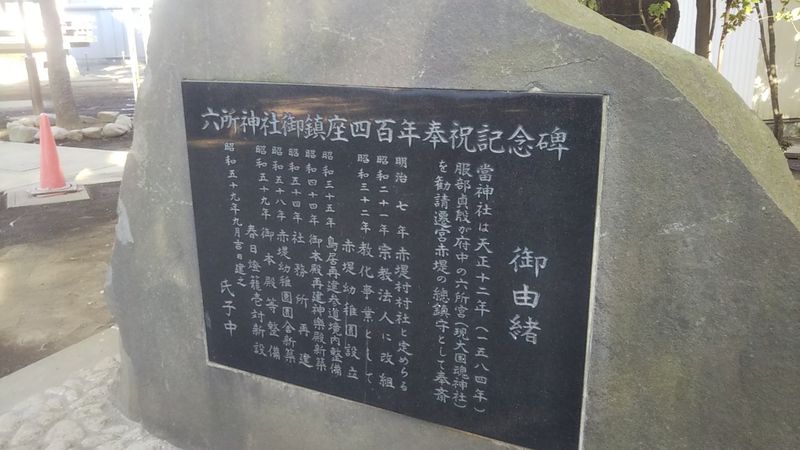 六所神社御鎮座四百年奉祝記念碑
御由緒
當神社は天正十二年(一五八四年)
服部貞殷が府中の六所宮(現大国魂神社)
を勧請遷宮赤堤の總鎮守として奉斎
明治 七 年 赤堤村村社と定めらる
昭和二十一年 宗教法人に改組
昭和三十二年 教化事業として、
赤堤幼稚園設立
昭和三十五年 鳥居再建参道境内整備
昭和四十四年 御本殿再建神楽殿新築
昭和五十四年 社務所再建
昭和五十八年 赤堤幼稚園園舎新築
昭和五十九年 御本殿等整備
春日燈籠壱対新設
昭和五十九年九月吉日建之
氏子中